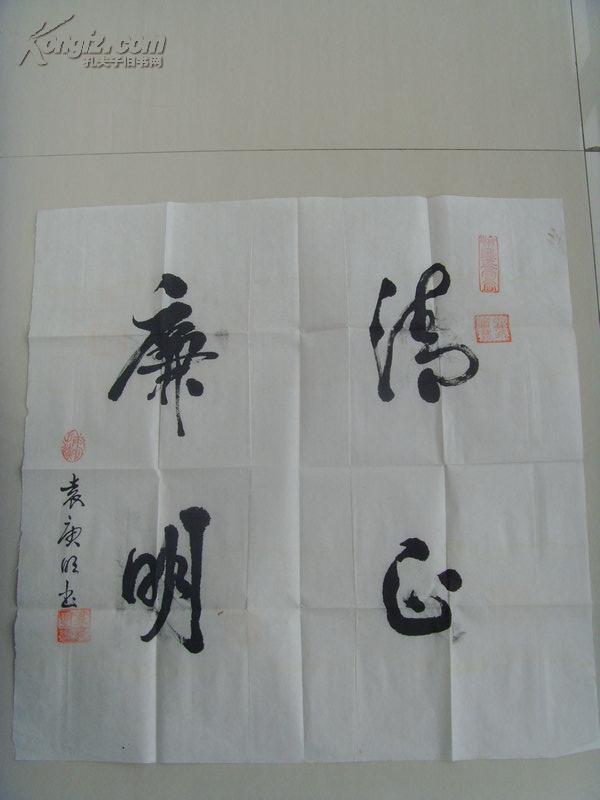 清正
廉明
袁庚明书
Kongfz.com
孔夫子旧书网